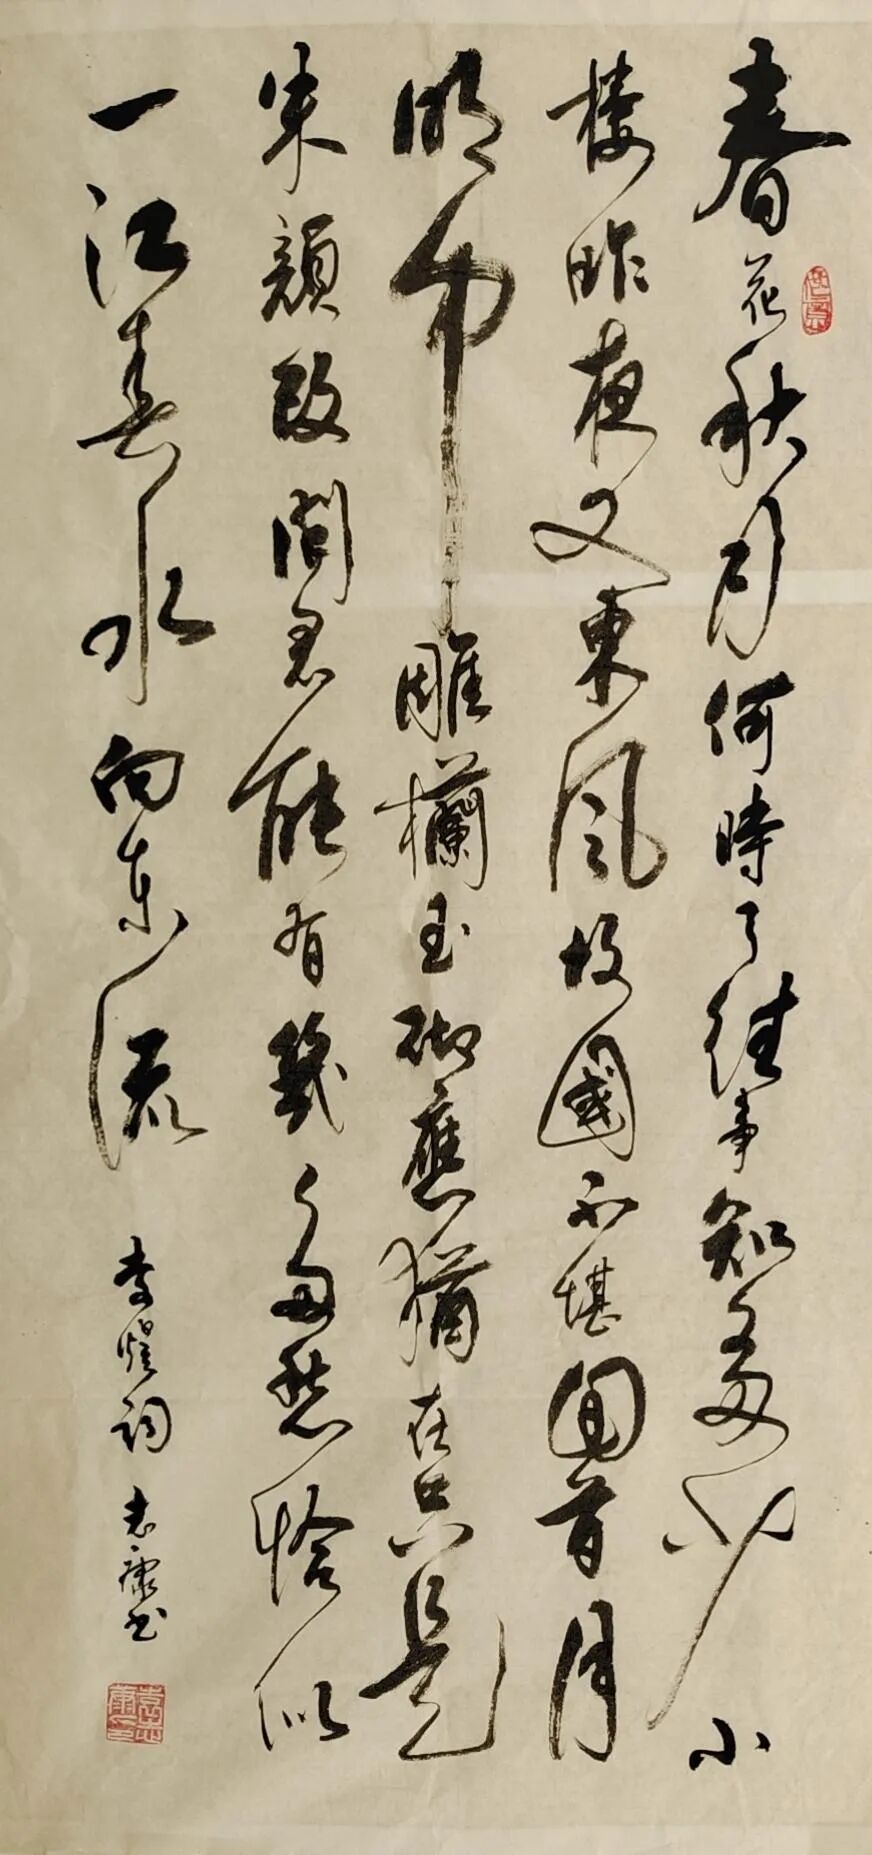 春花秋月何時了往事知多少小
樓昨夜又東風故國不堪回首月
明中雕欄玉砌應猶在只是
朱顏改問君能有幾多愁恰似
一江春水向東流
李煜詞 志康書